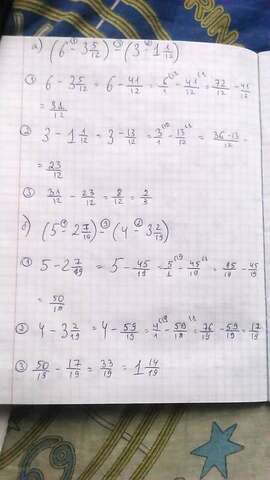 а) (6 - 3 5/12) - (3 - 1 1/12)
① 6 - 3 5/12 = 6 - 41/12 = 6/1 - 41/12 = 72/12 - 41/12
= 31/12
② 3 - 1 1/12 = 3 - 13/12 = 3/1 - 13/12 = 36-13/12
= 23/12
③ 31/12 - 23/12 = 8/12 = 2/3
б) (5 - 2 7/19) - (4 - 3 2/19)
① 5 - 2 7/19 = 5 - 45/19 = 5/1 - 45/19 = 95/19 - 45/19
= 50/19
② 4 - 3 2/19 = 4 - 59/19 = 4/1 - 59/19 = 76/19 - 59/19 = 17/19
③ 50/19 - 17/19 = 33/19 = 1 14/19